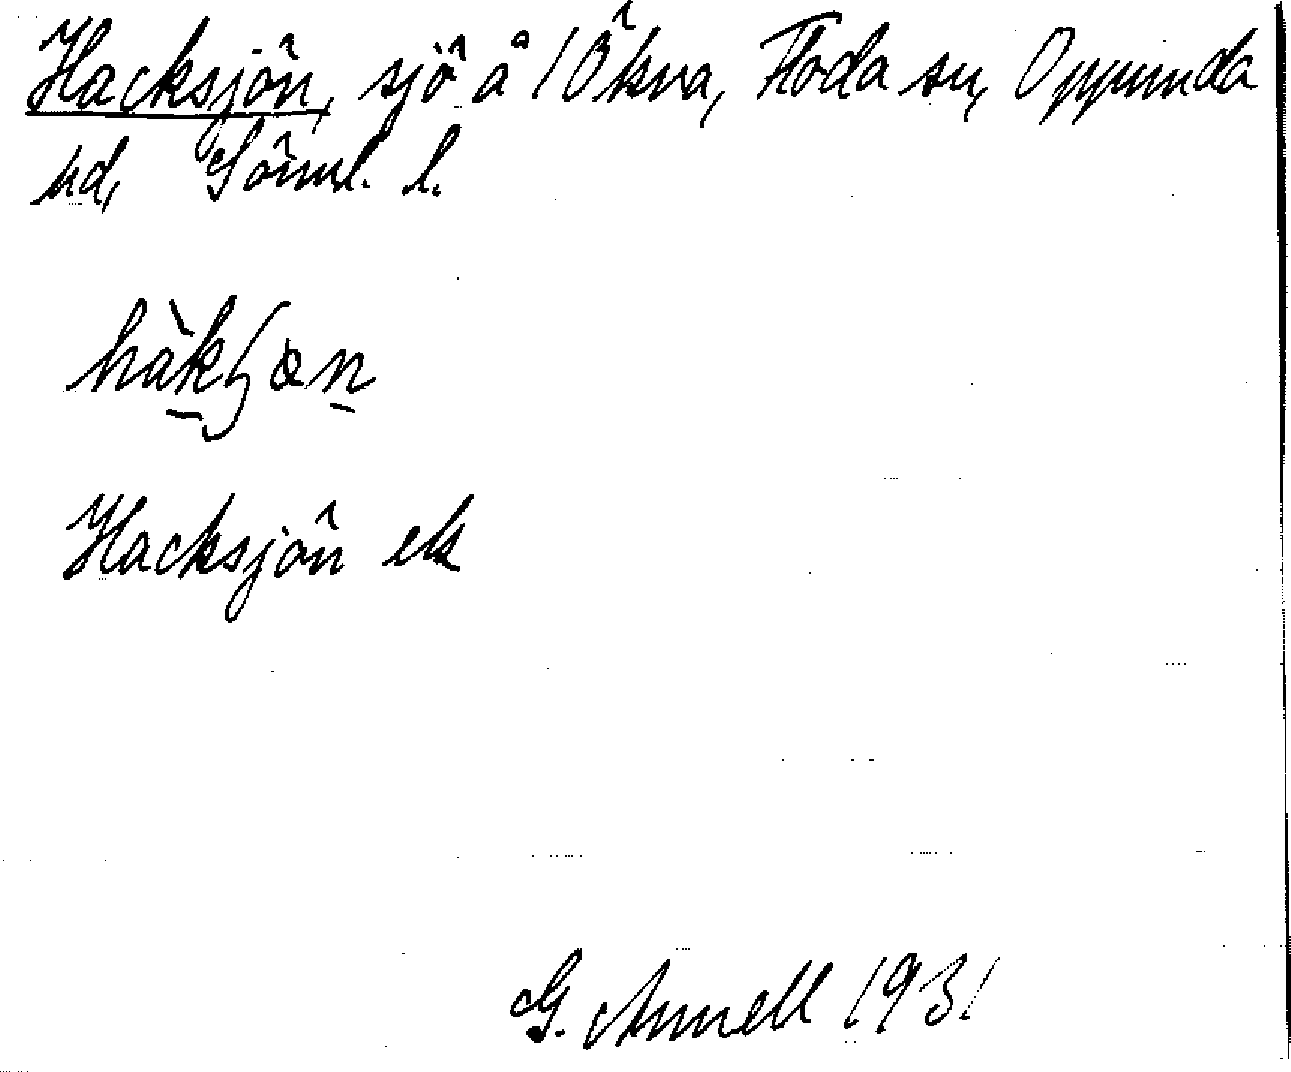 Hacksjön, sjö å 1 Ökna, Floda sn, Oppunda
hd, Söml. l.
hàkʃøn
Hacksjön ek
G. Annell 1931